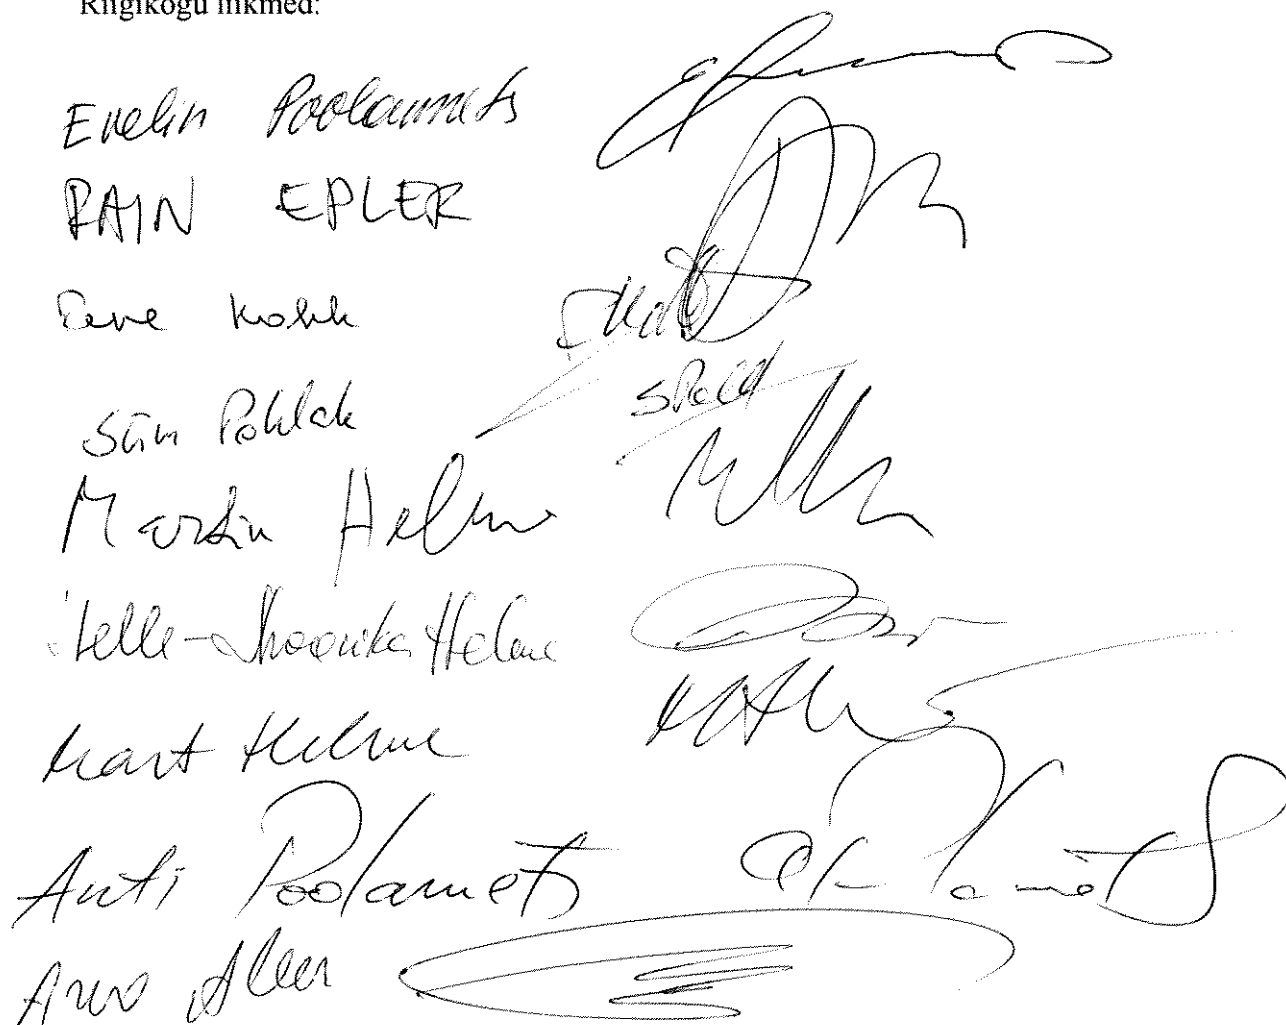 Riigikogu liikmed:
Evelin Poolamets
RAIN EPLER
Eeve Kokk
Siim Pohlak
Martin Helme
Helle-Moonika Helme
Mart Helme
Anti Poolamets
Arvo Aller